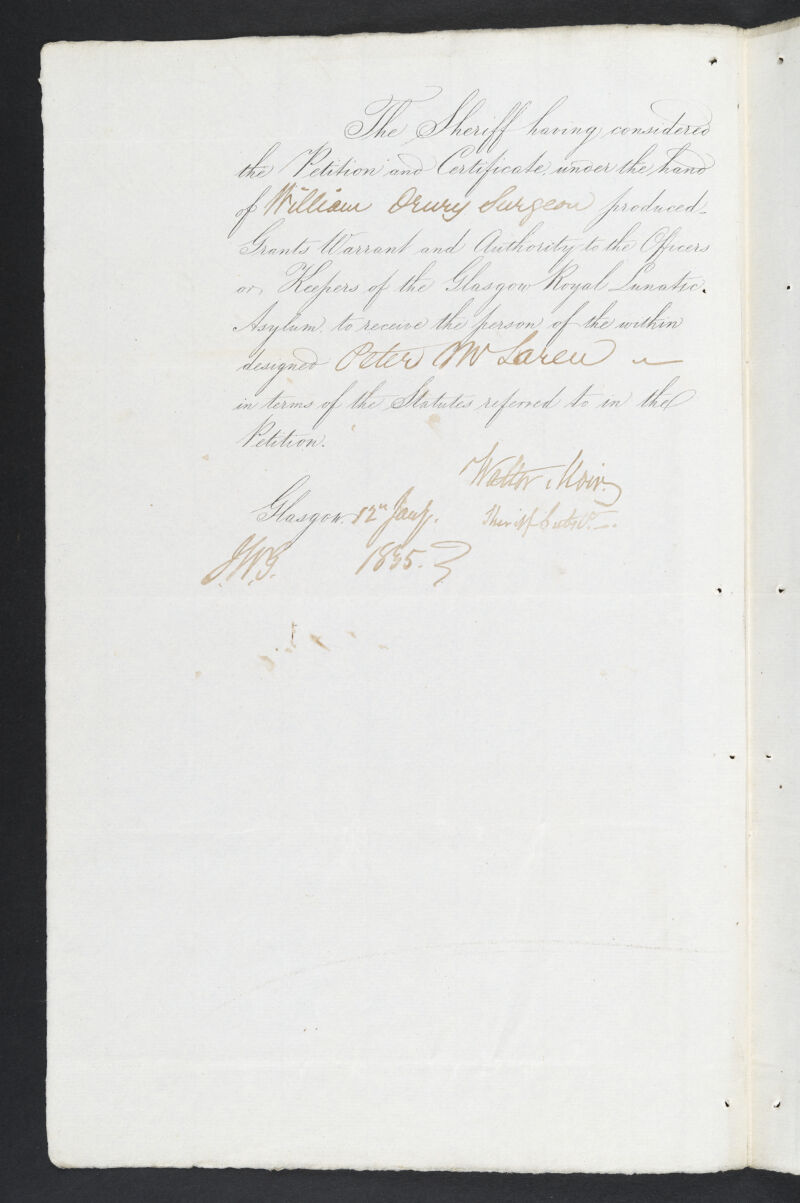 The Sheriff having considered
the Petition and Certificate under the hand
of William Drury Surgeon produced
Grants Warrant and Authority to the Officers
or Keepers of the Glasgow Royal Lunatic
Asylum to receive the person of the within
designed Peter McLaren
in terms of the Statutes referred to in the
Petition.
Walter Moir
Glasgow 12th Jany. Sheriff Subst.
1835.